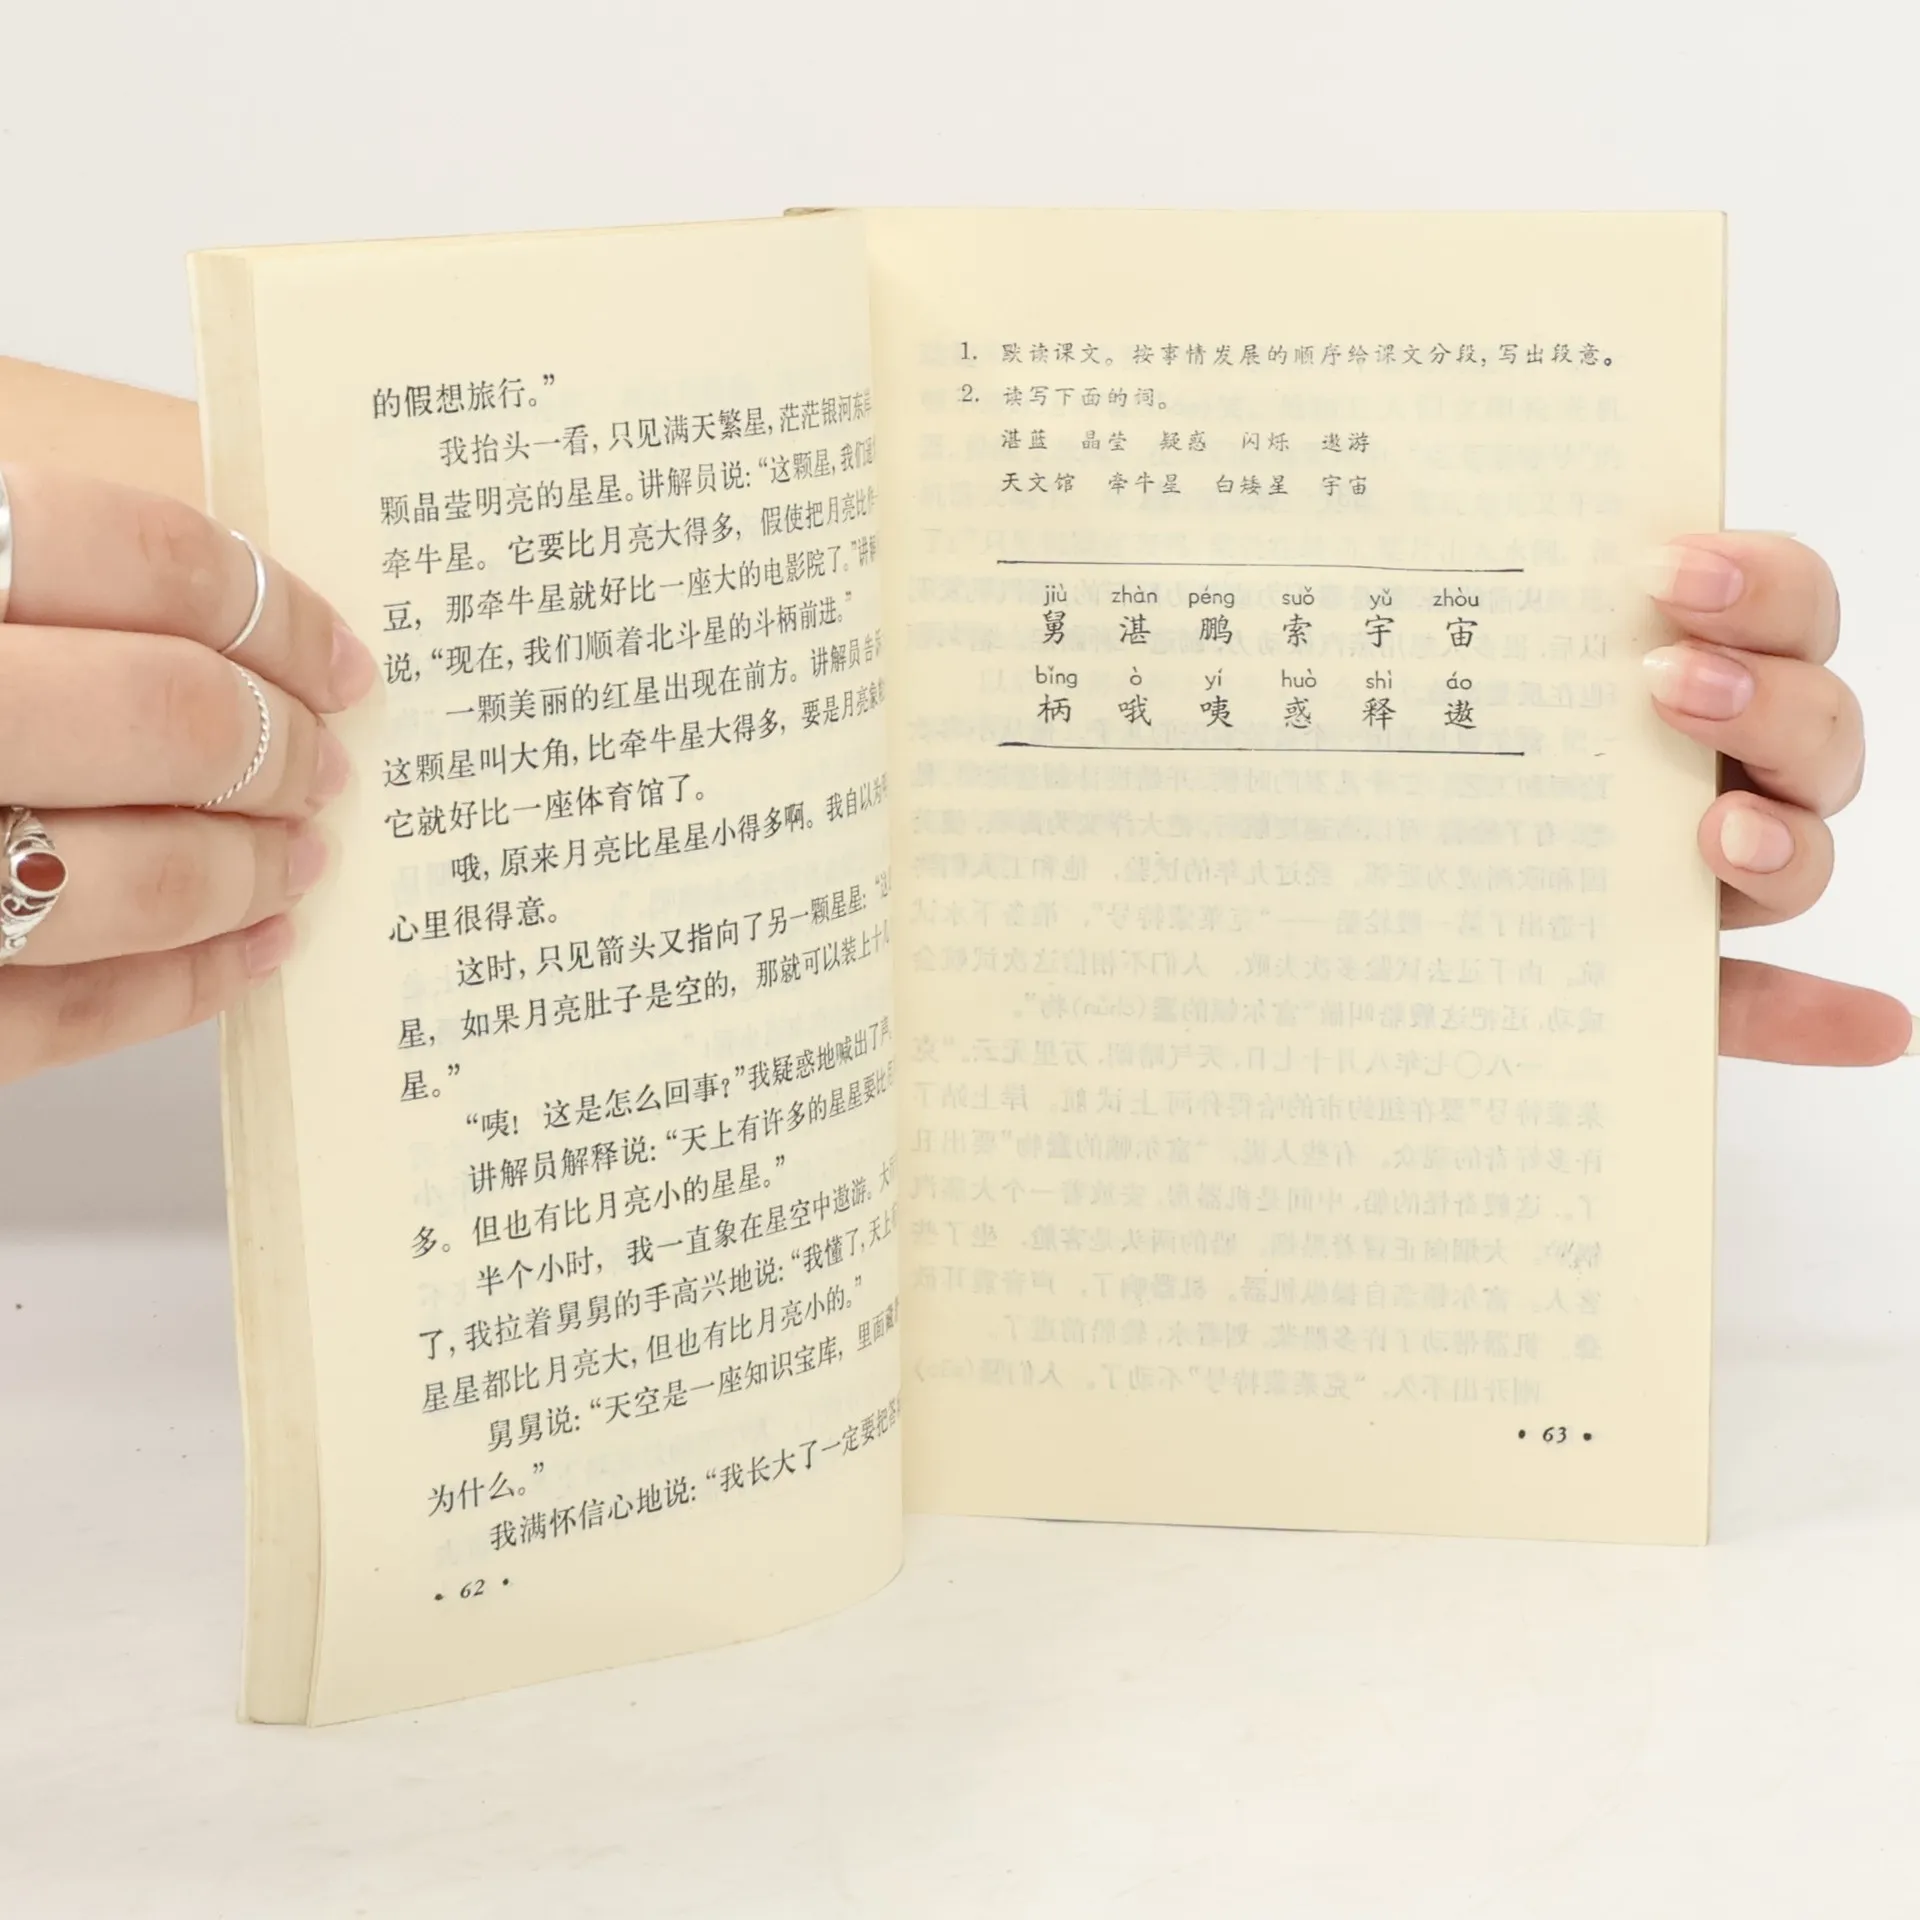 的假想旅行。”
我抬头一看，只见满天繁星，茫茫银河东岸
颗晶莹明亮的星星。讲解员说：“这颗星，我们
牵牛星。它要比月亮大得多，假使把月亮比作
豆，那牵牛星就好比一座大的电影院了。”讲解
说，“现在，我们顺着北斗星的斗柄前进。”
一颗美丽的红星出现在前方。讲解员告诉
这颗星叫大角，比牵牛星大得多，要是月亮象
它就好比一座体育馆了。
哦，原来月亮比星星小得多啊。我自以为
心里很得意。
这时，只见箭头又指向了另一颗星星：“这
星，如果月亮肚子是空的，那就可以装上十几
星。”
“咦！这是怎么回事？”我疑惑地喊出了声
讲解员解释说：“天上有许多的星星要比月
多。但也有比月亮小的星星。”
半个小时，我一直象在星空中遨游。
了，我拉着舅舅的手高兴地说：“我懂了，天上
星星都比月亮大，但也有比月亮小的。”
舅舅说：“天空是一座知识宝库，里面藏
为什么。”
我满怀信心地说：“我长大了一定要把
• 62 •
1. 默读课文。按事情发展的顺序给课文分段，写出段意。
2. 读写下面的词。
湛蓝 晶莹 疑惑 闪烁 遨游
天文馆 牵牛星 白矮星 宇宙
jiù zhàn péng suǒ yǔ zhòu
舅 湛 鹏 索 宇 宙
bǐng ò yí huò shì áo
柄 哦 咦 惑 释 遨
• 63 •